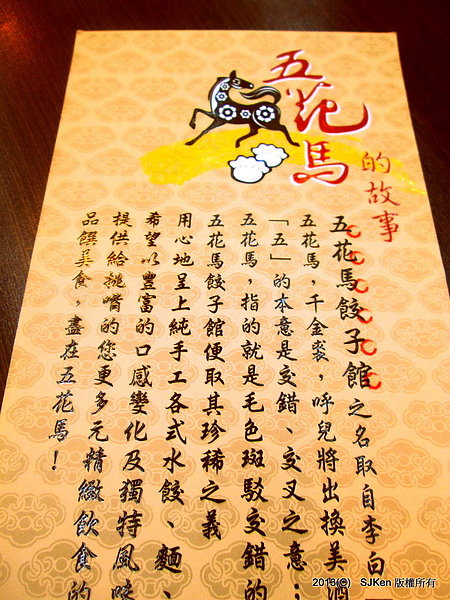 五花馬
的故事
五花馬餃子館之名取自李白
五花馬,千金裘,呼兒將出換美酒
「五」的本意是交錯、交叉之意:
五花馬,指的就是毛色斑駁交錯的
五花馬餃子館便取其珍稀之義
用心地呈上純手工各式水餃、麵、
希望以豐富的口感變化及獨特風味
提供給挑嘴的您更多元精緻飲食的
品饌美食,盡在五花馬!
2013© SJKen 版權所有